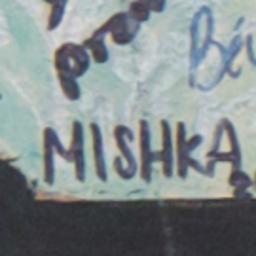 pram
Bé
MISHKA